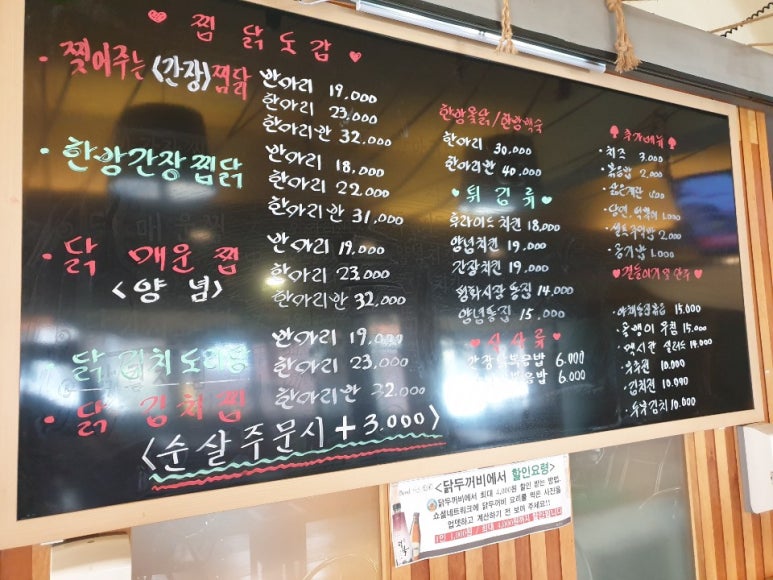 ♥ 찜 닭 도 감 ♥
· 찢어주는 <간장> 찜닭
반마리 19,000
한마리 23,000
한마리반 32,000
· 한방간장찜닭
반마리 18,000
한마리 22,000
한마리반 31,000
· 닭 매운 찜
<양 념>
반마리 19,000
한마리 23,000
한마리반 32,000
· 닭 김치도리탕
· 닭 김치찜
반마리 19,000
한마리 23,000
한마리반 32,000
<순살주문시 + 3,000>
한방옻닭/한방백숙
한마리 30,000
한마리반 40,000
♥ 튀 김 류 ♥
후라이드치킨 18,000
양념치킨 19,000
간장치킨 19,000
평화시장 똥집 14,000
양념똥집 15,000
♥ 식 사 류 ♥
볶음밥 6,000
볶음밥 6,000
♠ 추가메뉴 ♠
· 치즈 3,000
· 볶음밥 2,000
· 삶은계란
· 당면, 떡볶이 1,000
· 셀프주먹밥 2,000
· 공기밥 1,000
♥ 곁들이기 및 안주 ♥
· 야채똥집볶음 15,000
· 골뱅이 무침 15,000
· 멕시칸 샐러드 14,000
· 부추전 10,000
· 김치전 10,000
· 두부김치 10,000
<닭두꺼비에서 할인요령>
닭두꺼비에서 최대 4,000원 할인 받는 방법.
쇼셜네트워크에 닭두꺼비 요리를 찍은 사진을
업뎃하고 계산하기 전 보여 주세요!!
1인 1,000원 / 최대 4,000원까지 할인됩니다